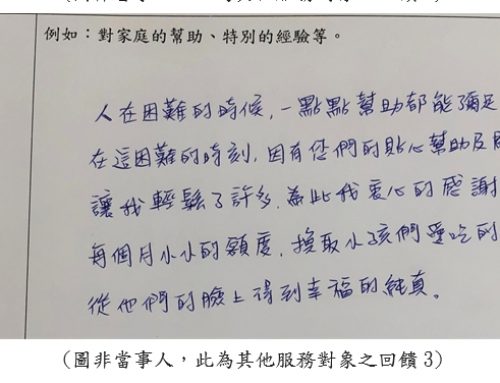 例如：對家庭的幫助、特別的經驗等。
人在困難的時候，一點點幫助都能彌足
在這困難的時刻，因有您們的貼心幫助及
讓我輕鬆了許多，為此我衷心的感謝
每個月小小的額度，換取小孩們愛吃的
從他們的臉上得到幸福的純真。
(圖非當事人，此為其他服務對象之回饋 3)